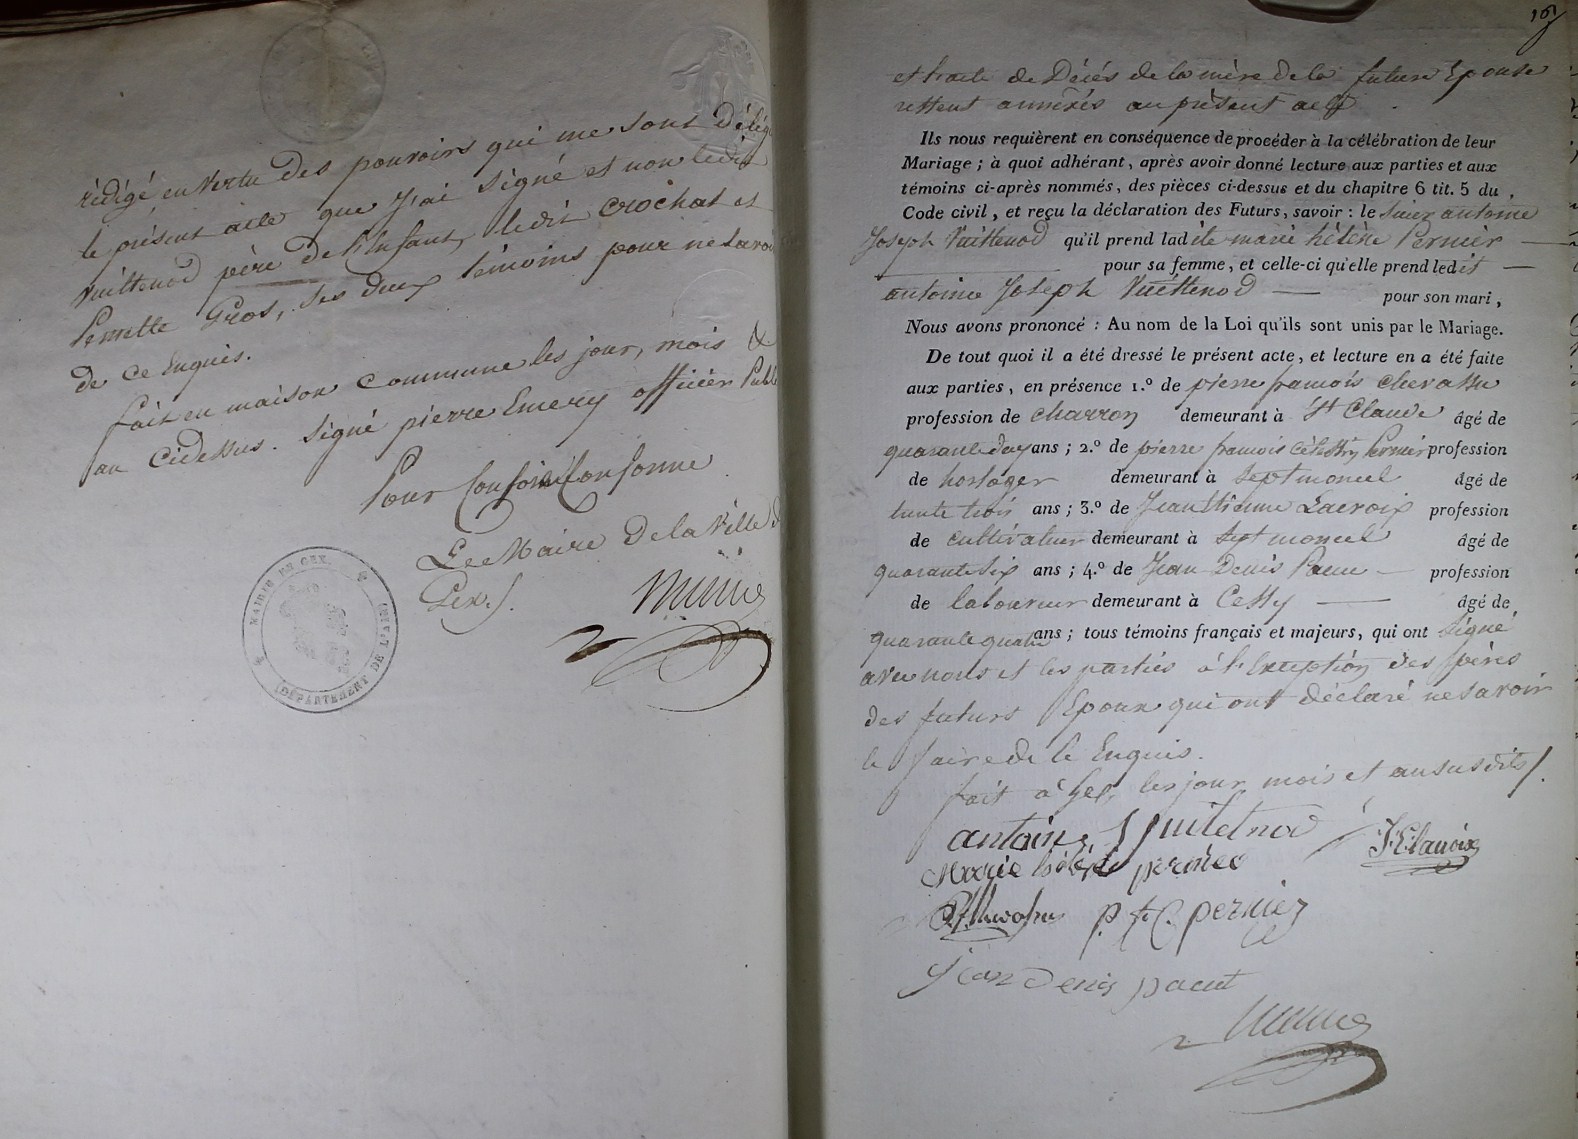 rédigé en vertu des pouvoirs qui me sont délég
le présent acte que j'ai signé et non ledit
Vuittenod père de l'Enfant, ledit Crochat et
Pernette Gros, ses deux témoins pour ne savoi
de ce Enquis.
fait en maison Commune les jour, mois &
an cidessus. Signé pierre Emery officier Publ
Pour Conforme
Le Maire de la Ville d
Gex./.
MAIRIE DE GEX.
(DÉPARTEMENT DE L'AIN)
et l'acte de Décés de la mère de la future Epouse
restent annéxés au présent acte.
Ils nous requièrent en conséquence de procéder à la célébration de leur
Mariage ; à quoi adhérant, après avoir donné lecture aux parties et aux
témoins ci-après nommés, des pièces ci-dessus et du chapitre 6 tit. 5 du
Code civil, et reçu la déclaration des Futurs, savoir : le Sieur antoine
Joseph Vuittenod qu'il prend ladite marie hélène Pernier
pour sa femme, et celle-ci qu'elle prend ledit
antoine Joseph Vuittenod pour son mari,
Nous avons prononcé : Au nom de la Loi qu'ils sont unis par le Mariage.
De tout quoi il a été dressé le présent acte, et lecture en a été faite
aux parties, en présence 1.º de pierre françois chevassu
profession de charron demeurant à St Claude âgé de
quarante deux ans ; 2.º de pierre françois Célestin Pernier profession
de horloger demeurant à Septmoncel âgé de
trente trois ans ; 3.º de Jean Etienne Lacroix profession
de cultivateur demeurant à Septmoncel âgé de
quarante six ans ; 4.º de Jean Denis Pacut profession
de laboureur demeurant à Cessy âgé de
quarante quatre ans ; tous témoins français et majeurs, qui ont signé
avec nous et les parties à l'Exception des pères
des futurs Epoux qui ont déclaré ne savoir
le faire de le Enquis.
fait à Gex les jour, mois et an susdits/.
antoine J Vuitetnod
J. E. lacroix
Marie héléne pernier
P. f. C. pernier
jean Denis pacut